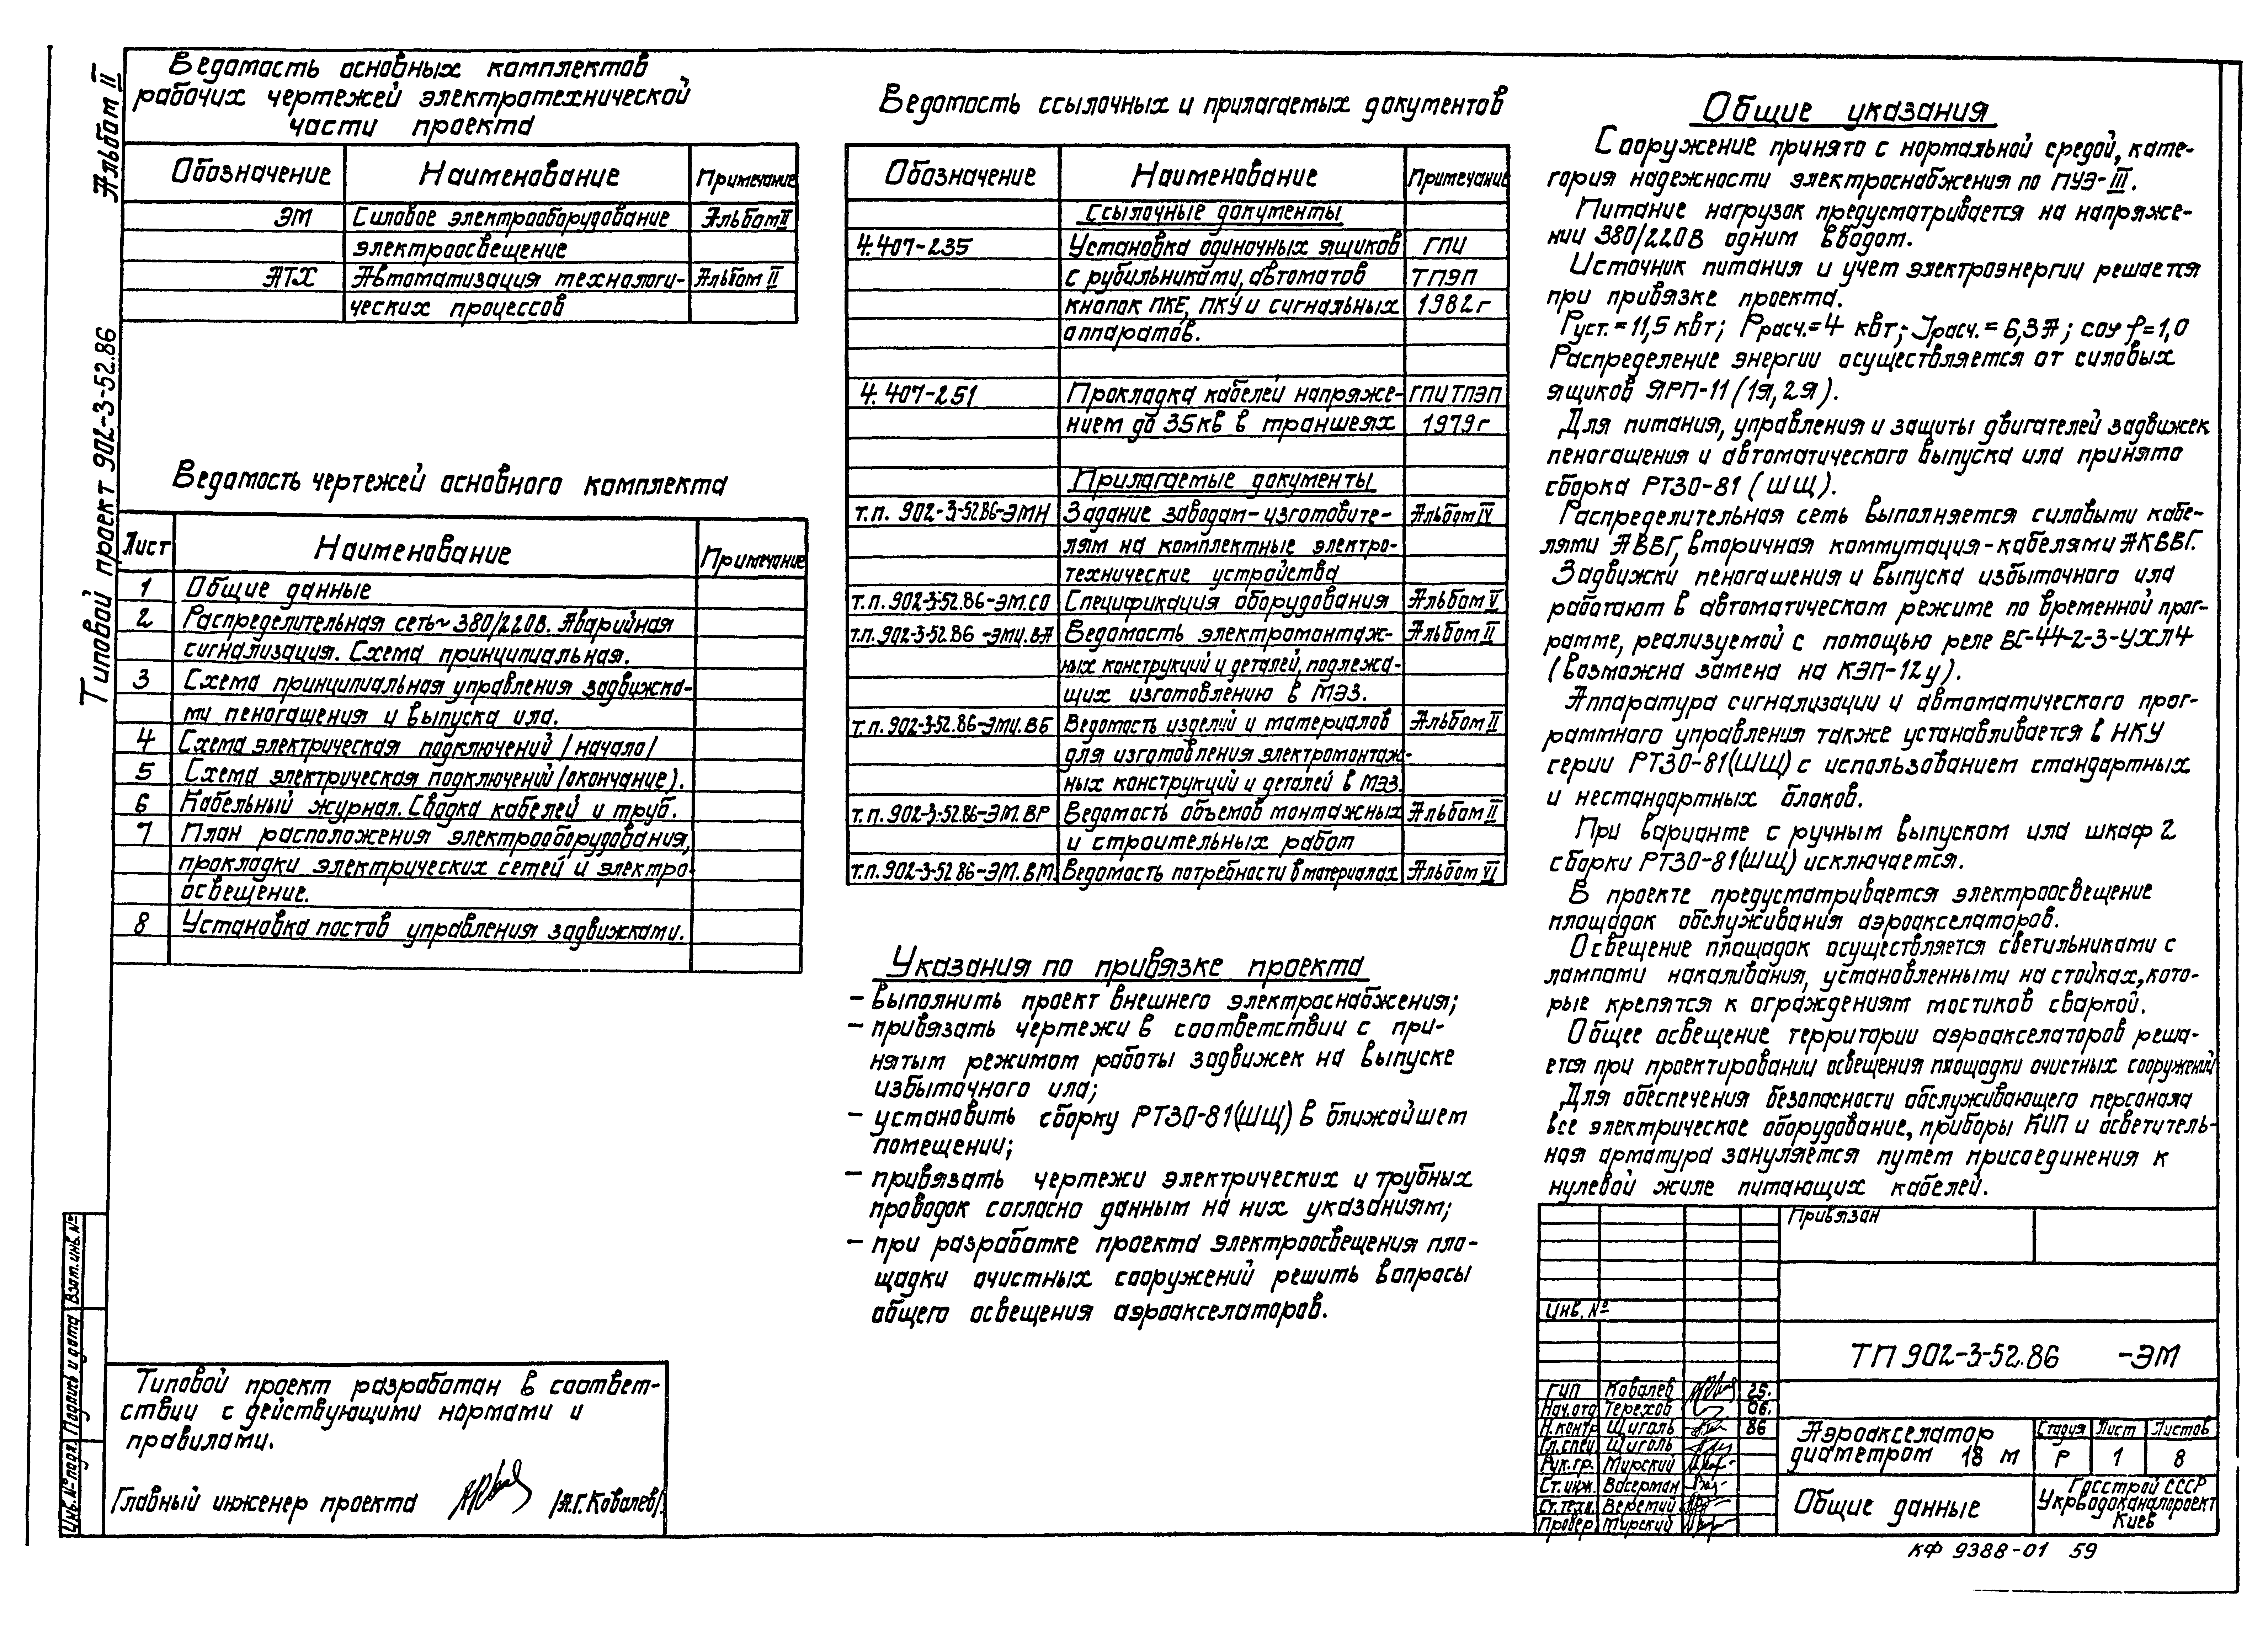 Альбом II
Типовой проект 902-3-52.86
Ведомость основных комплектов
рабочих чертежей электротехнической
части проекта
Обозначение Наименование Примечание
ЭМ Силовое электрооборудование Альбом II
электроосвещение
АТХ Автоматизация технологи- Альбом II
ческих процессов
Ведомость чертежей основного комплекта
Лист Наименование Примечание
1 Общие данные
2 Распределительная сеть ~ 380/220в. Аварийная
сигнализация. Схема принципиальная.
3 Схема принципиальная управления задвижка-
ми пеногашения и выпуска ила.
4 Схема электрическая подключений /начало/
5 Схема электрическая подключений (окончание).
6 Кабельный журнал. Сводка кабелей и труб.
7 План расположения электрооборудования,
прокладки электрических сетей и электро-
освещение.
8 Установка постов управления задвижками.
Типовой проект разработан в соответ-
ствии с действующими нормами и
правилами.
Главный инженер проекта /А.Г. Ковалев/.
Взам. инв. №
Подпись и дата
Инв. № подл.
Ведомость ссылочных и прилагаемых документов
Обозначение Наименование Примечание
Ссылочные документы
4.407-235 Установка одиночных ящиков ГПИ
с рубильниками, автоматов ТПЭП
кнопок ПКЕ, ПКУ и сигнальных 1982г
аппаратов.
4.407-251 Прокладка кабелей напряже- ГПИ ТПЭП
нием до 35кв в траншеях 1979г
Прилагаемые документы
т.п. 902-3-52.86-ЭМН Задание заводам-изготовите- Альбом IV
лям на комплектные электро-
технические устройства
т.п. 902-3-52.86-ЭМ.СО Спецификация оборудования Альбом V
т.п. 902-3-52.86-ЭМИ.ВА Ведомость электромонтаж- Альбом II
ных конструкций и деталей, подлежа-
щих изготовлению в МЭЗ.
т.п. 902-3-52.86-ЭМИ.ВБ Ведомость изделий и материалов Альбом II
для изготовления электромонтаж-
ных конструкций и деталей в МЭЗ.
т.п. 902-3-52.86-ЭМ.ВР Ведомость объемов монтажных Альбом II
и строительных работ
т.п. 902-3-52.86-ЭМ.ВМ Ведомость потребности в материалах Альбом VI
Указания по привязке проекта
– выполнить проект внешнего электроснабжения;
– привязать чертежи в соответствии с при-
нятым режимом работы задвижек на выпуске
избыточного ила;
– установить сборку РТ30-81(ШЩ) в ближайшем
помещении;
– привязать чертежи электрических и трубных
проводок согласно данным на них указаниям;
– при разработке проекта электроосвещения пло-
щадки очистных сооружений решить вопросы
общего освещения аэроакселаторов.
Общие указания
Сооружение принято с нормальной средой, кате-
гория надежности электроснабжения по ПУЭ-III.
Питание нагрузок предусматривается на напряже-
нии 380/220В одним вводом.
Источник питания и учет электроэнергии решается
при привязке проекта.
Руст.=11,5 квт; Ррасч.=4 квт; Jрасч.=6,3А; cosφ=1,0
Распределение энергии осуществляется от силовых
ящиков ЯРП-11 (1Я, 2Я).
Для питания, управления и защиты двигателей задвижек
пеногашения и автоматического выпуска ила принята
сборка РТ30-81 (ШЩ).
Распределительная сеть выполняется силовыми кабе-
лями АВВГ, вторичная коммутация-кабелями АКВВГ.
Задвижки пеногашения и выпуска избыточного ила
работают в автоматическом режиме по временной прог-
рамме, реализуемой с помощью реле ВС-44-2-3-УХЛ4
(возможна замена на КЭП-12у).
Аппаратура сигнализации и автоматического прог-
раммного управления также устанавливается в НКУ
серии РТ30-81(ШЩ) с использованием стандартных
и нестандартных блоков.
При варианте с ручным выпуском ила шкаф 2
сборки РТ30-81(ШЩ) исключается.
В проекте предусматривается электроосвещение
площадок обслуживания аэроакселаторов.
Освещение площадок осуществляется светильниками с
лампами накаливания, установленными на стойках, кото-
рые крепятся к ограждениям мостиков сваркой.
Общее освещение территории аэроакселаторов реша-
ется при проектировании освещения площадки очистных сооружений
Для обеспечения безопасности обслуживающего персонала
все электрическое оборудование, приборы КИП и осветитель-
ная арматура зануляется путем присоединения к
нулевой жиле питающих кабелей.
Привязан
Инв. №
ТП 902-3-52.86 -ЭМ
ГИП Ковалев 25.
Нач.отд Терехов 06.
Н.контр Щиголь 86
Гл.спец Щиголь
Рук.гр. Мирский
Ст.инж. Васерман
Ст.техн. Веремий
Провер. Мирский
Аэроакселатор
диаметром 18 м
Стадия Лист Листов
Р 1 8
Общие данные
Госстрой СССР
Укрводоканалпроект
Киев
КФ 9388-01 59